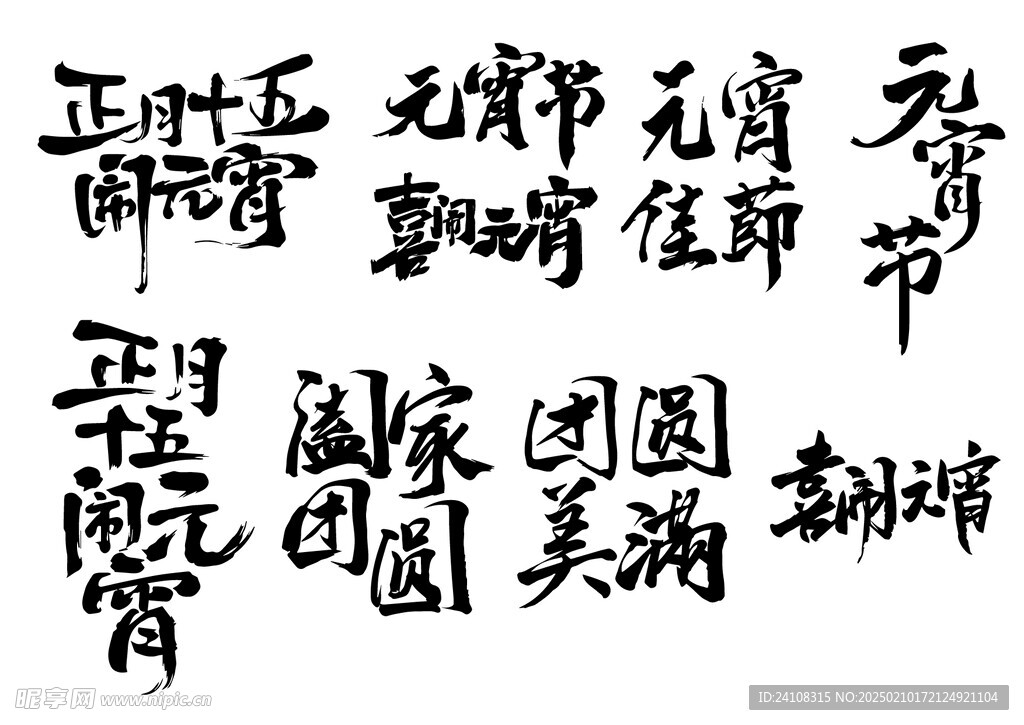 正月十五
闹元宵
元宵节
喜闹元宵
元宵
佳節
元
宵
节
正月
十五
闹元
宵
阖家
团圆
团圆
美满
喜闹元宵
昵享网 www.nipic.cn
ID:24108315 NO:20250210172124921104